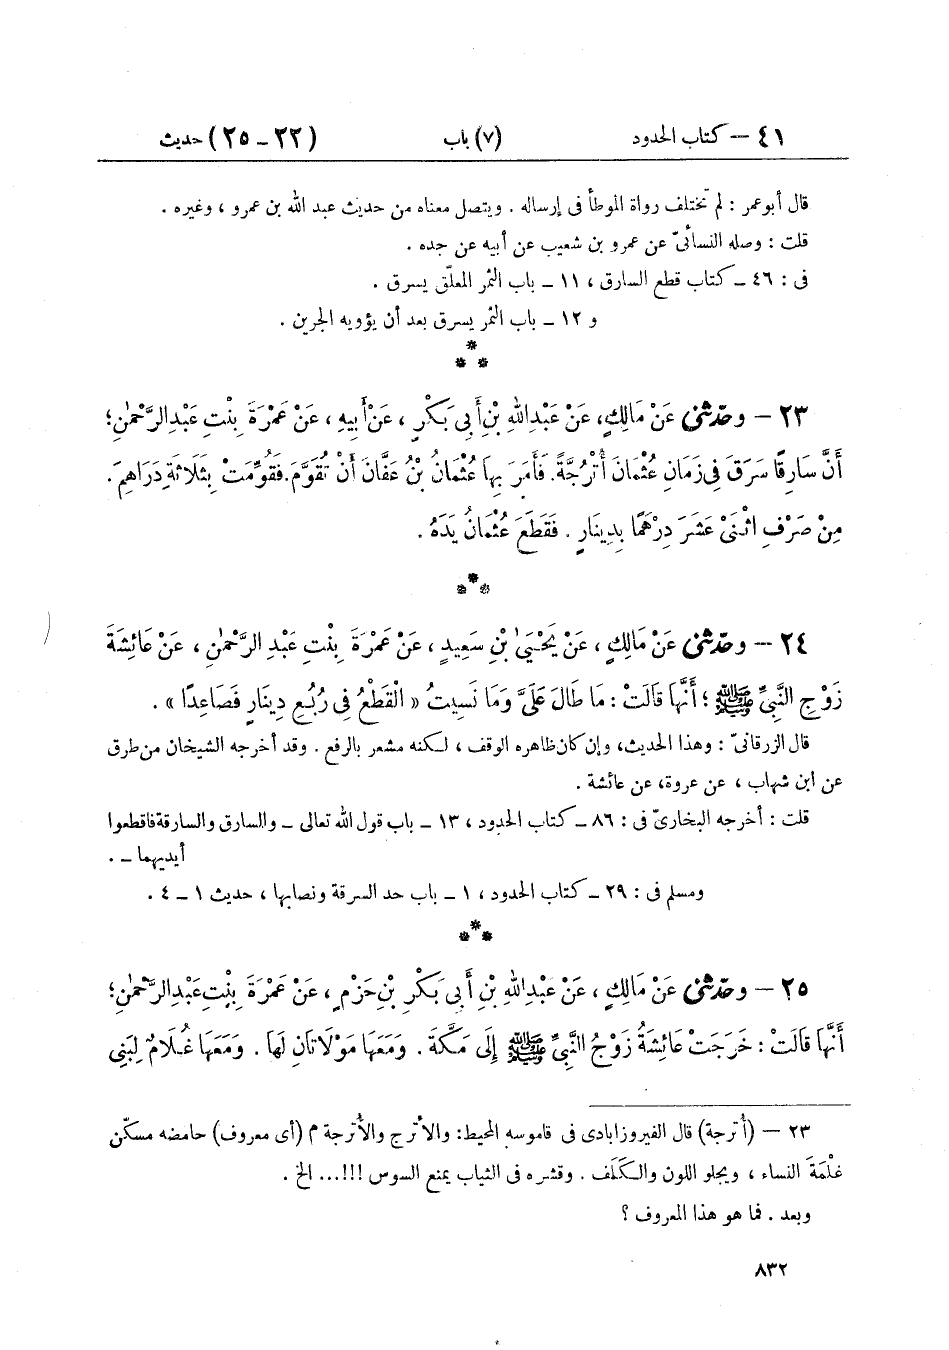 ٤١ – كتاب الحدود (٧) باب (٢٢ – ٢٥) حديث
قال أبو عمر : لم تختلف رواة الموطأ فى إرساله . ويتصل معناه من حديث عبد الله بن عمرو ، وغيره .
قلت : وصله النسائىّ عن عمرو بن شعيب عن أبيه عن جده .
فى : ٤٦ – كتاب قطع السارق ، ١١ – باب الثمر المعلّق يسرق .
و ١٢ – باب الثمر يسرق بعد أن يؤويه الجرين .
***
٢٣ – وحدّثنى عَنْ مَالِكٍ، عَنْ عَبْدِ اللهِ بْنِ أَبِى بَكْرٍ ، عَنْ أَبِيهِ ، عَنْ عَمْرَةَ بِنْتِ عَبْدِ الرَّحْمٰنِ؛
أَنَّ سَارِقًا سَرَقَ فِى زَمَانِ عُثْمَانَ أُتْرُجَّةً. فَأَمَرَ بِهَا عُثْمَانُ بْنُ عَفَّانَ أَنْ تُقَوَّمَ. فَقُوِّمَتْ بِثَلَاثَةِ دَرَاهِمَ .
مِنْ صَرْفِ اثْنَىْ عَشَرَ دِرْهَمًا بِدِينَارٍ . فَقَطَعَ عُثْمَانُ يَدَهُ .
***
٢٤ – وحدّثنى عَنْ مَالِكٍ ، عَنْ يَحْيَىٰ بْنِ سَعِيدٍ ، عَنْ عَمْرَةَ بِنْتِ عَبْدِ الرَّحْمٰنِ ، عَنْ عَائِشَةَ
زَوْجِ النَّبِىِّ ﷺ ؛ أَنَّهَا قَالَتْ : مَا طَالَ عَلَىَّ وَمَا نَسِيتُ « الْقَطْعُ فِى رُبُعِ دِينَارٍ فَصَاعِدًا » .
قال الزرقانىّ : وهذا الحديث، وإن كان ظاهره الوقف ، لكنه مشعر بالرفع . وقد أخرجه الشيخان من طرق
عن ابن شهاب ، عن عروة، عن عائشة .
قلت : أخرجه البخارىّ فى : ٨٦ – كتاب الحدود ، ١٣ – باب قول الله تعالى – والسارق والسارقة فاقطعوا
أيديهما – .
ومسلم فى : ٢٩ – كتاب الحدود، ١ – باب حد السرقة ونصابها ، حديث ١ – ٤ .
***
٢٥ – وحدّثنى عَنْ مَالِكٍ ، عَنْ عَبْدِ اللهِ بْنِ أَبِى بَكْرِ بْنِ حَزْمٍ ، عَنْ عَمْرَةَ بِنْتِ عَبْدِ الرَّحْمٰنِ؛
أَنَّهَا قَالَتْ : خَرَجَتْ عَائِشَةُ زَوْجُ النَّبِىِّ ﷺ إِلَى مَكَّةَ . وَمَعَهَا مَوْلَاتَانِ لَهَا . وَمَعَهَا غُلَامٌ لِبَنِى
٢٣ – (أترجة) قال الفيروزابادى فى قاموسه المحيط: والأترج والأترجة م (أى معروف) حامضه مسكّن
غُلْمَةَ النساء ، ويجلو اللون والكَلَف . وقشره فى الثياب يمنع السوس !!!... الخ .
وبعد . فما هو هذا المعروف ؟
٨٣٢